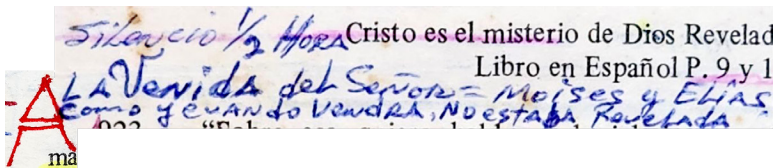 Silencio 1/2 Hora Cristo es el misterio de Dios Revelad
Libro en Español P. 9 y 1
LA Venida del Señor = Moises y Elías
como y cuando vendra, No estaba Revelada
A
ma